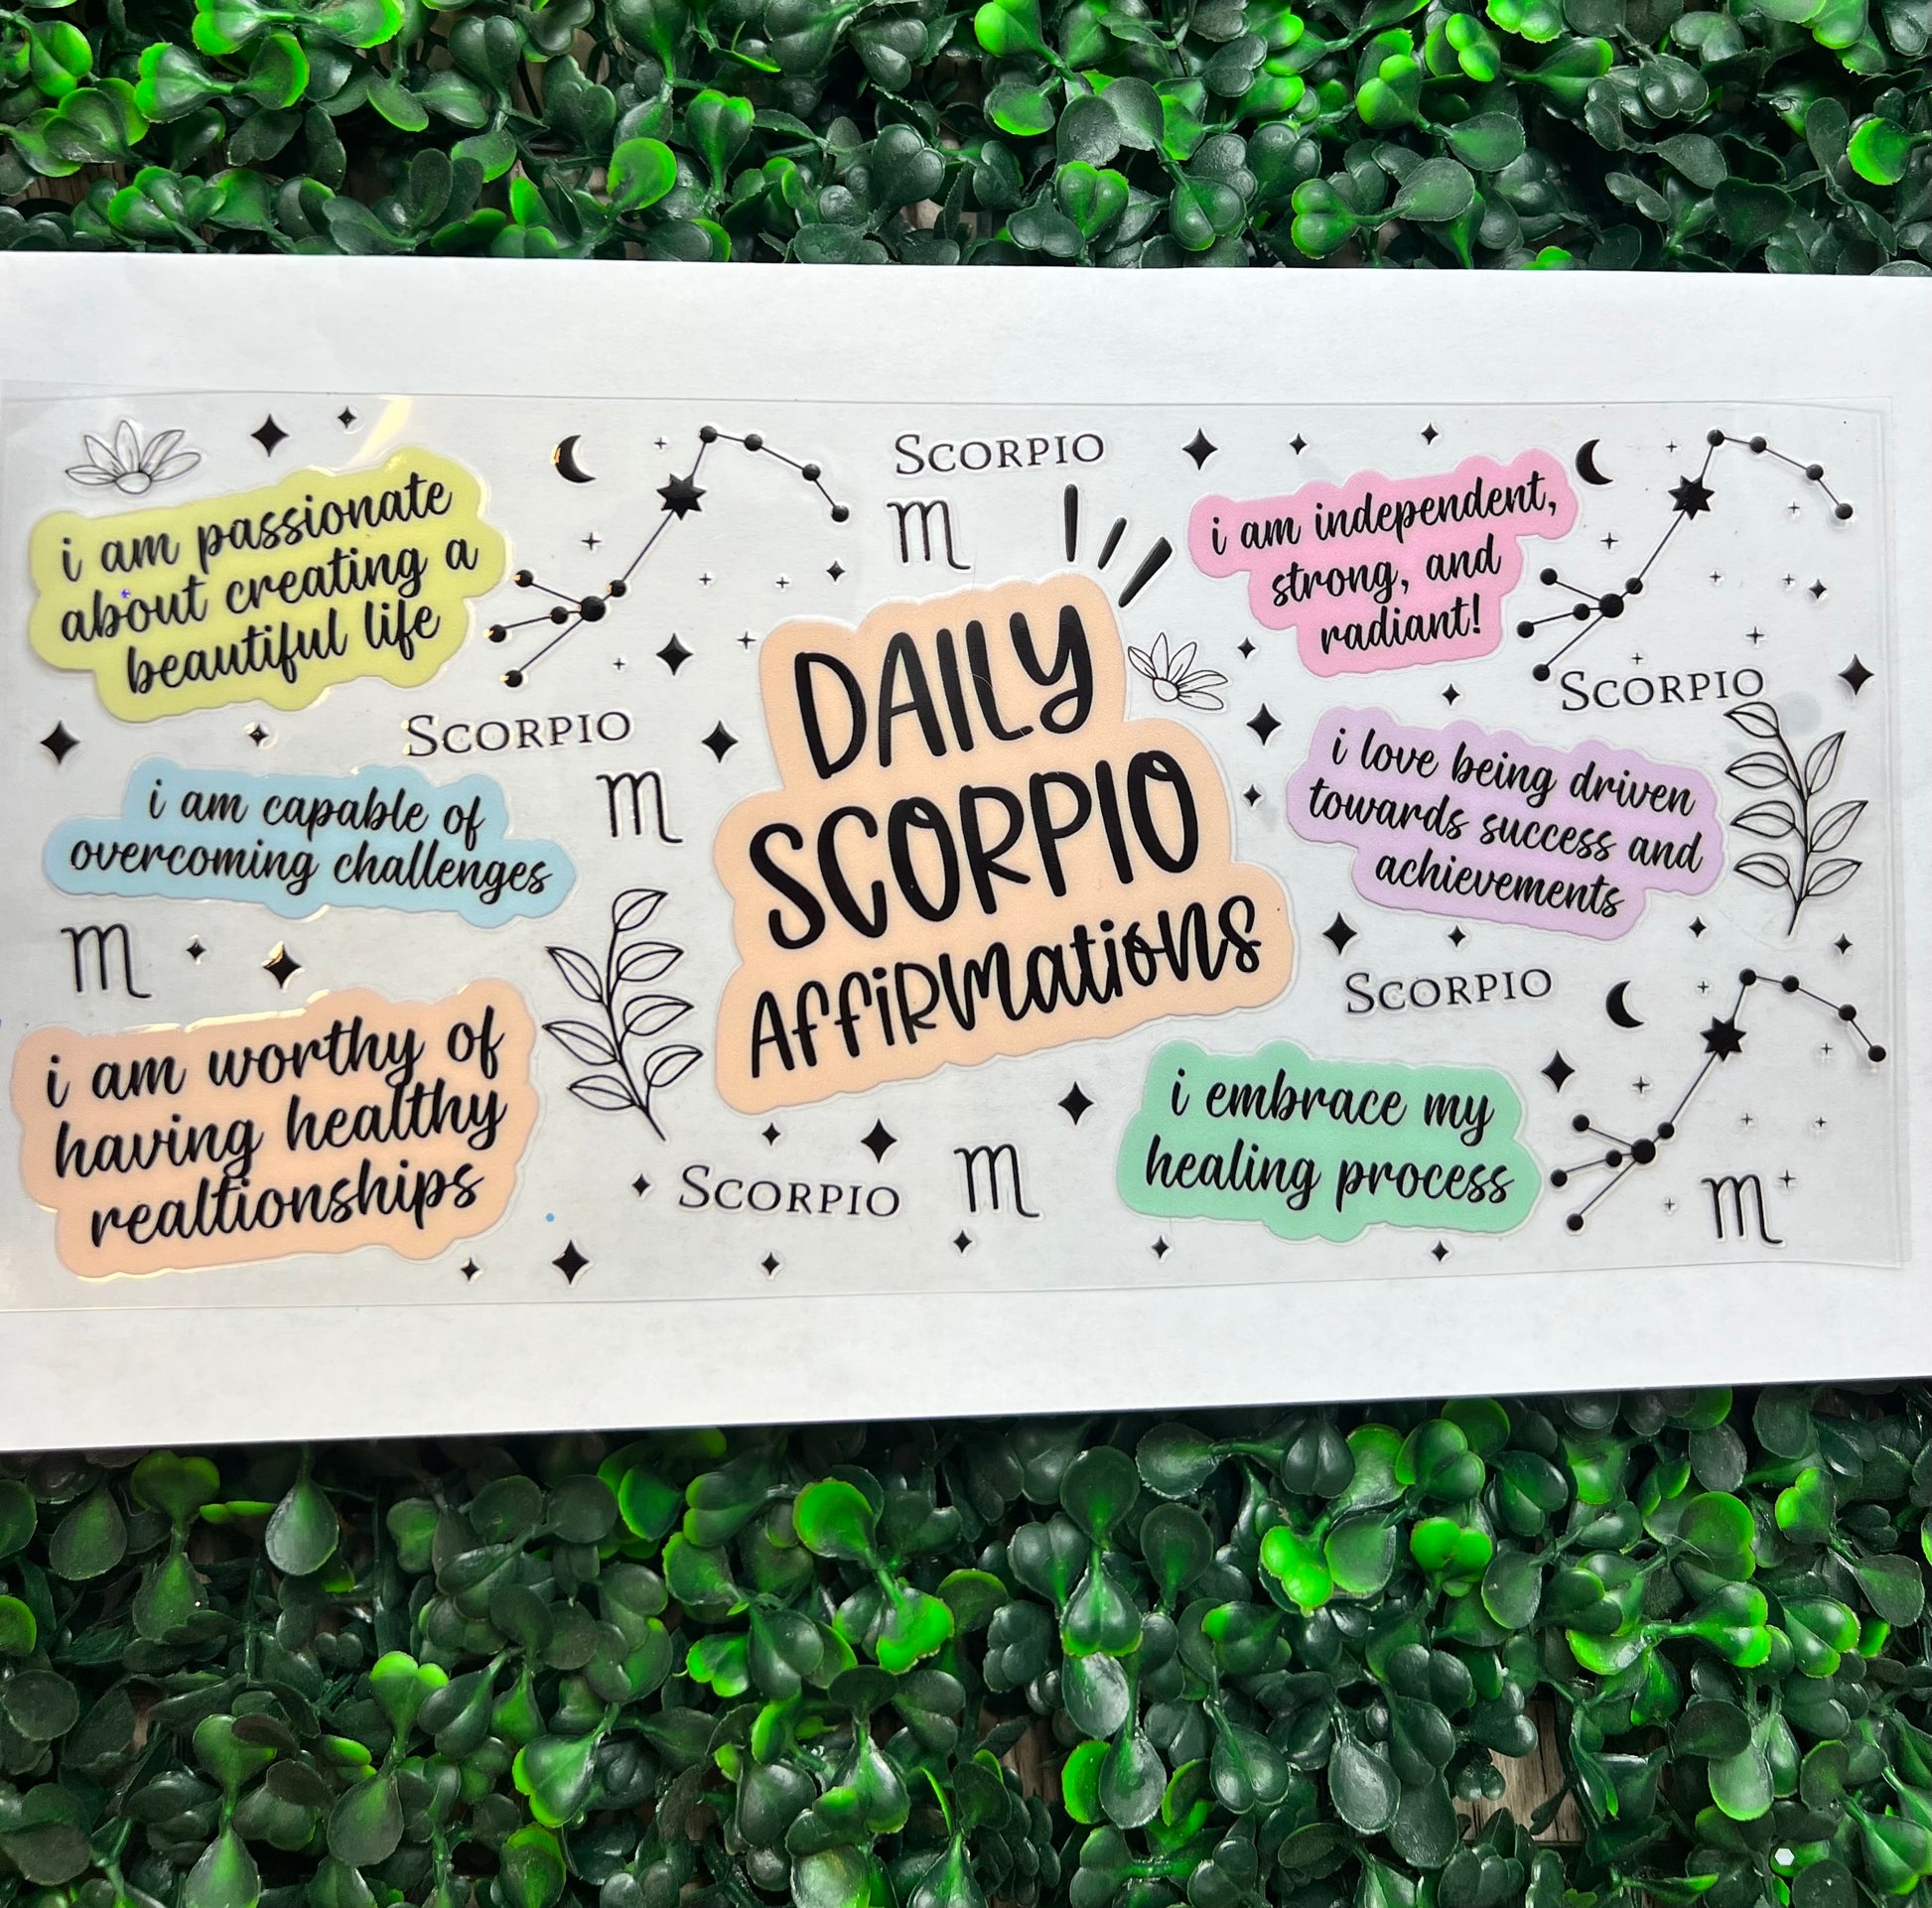 i am passionate
about creating a
beautiful life
Scorpio
i am capable of
overcoming challenges
i am worthy of
having healthy
realtionships
Scorpio
DAILY
SCORPIO
AffiRmatioNS
Scorpio
i am independent,
strong, and
radiant!
Scorpio
i love being driven
towards success and
achievements
Scorpio
i embrace my
healing process